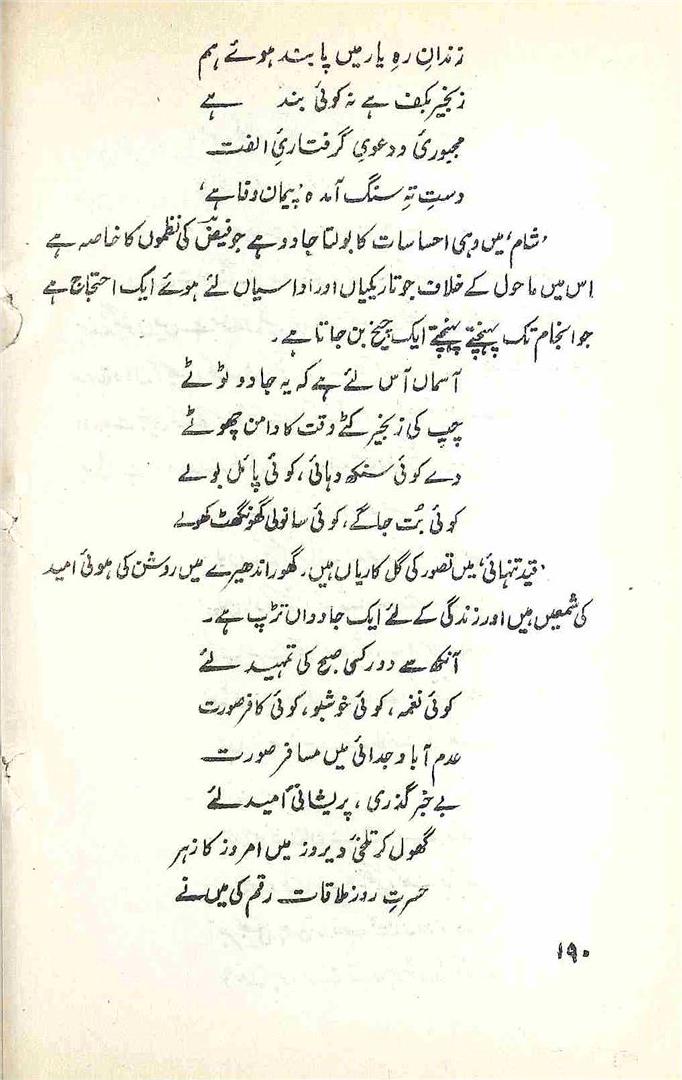 زندانِ رہِ یار میں پابند ہوئے ہم
زنجیر بکف ہے نہ کوئی بند ہے
مجبوریٔ و دعویِ گرفتاریٔ الفت
دستِ تہِ سنگ آمدہ ’پیمان وفا ہے‘
’شام‘ میں وہی احساسات کا بولتا جادو ہے جو فیضؔ کی نظموں کا خاصہ ہے
اس میں ماحول کے خلاف جو تاریکیاں اور اداسیاں لئے ہوئے ایک احتجاج ہے
جو انجام تک پہنچتے پہنچتے ایک چیخ بن جاتا ہے۔
آسماں آس لئے ہے کہ یہ جادو ٹوٹے
چپ کی زنجیر کٹے وقت کا دامن چھوٹے
دے کوئی سنکھ دہائی، کوئی پائل بولے
کوئی بُت جاگے، کوئی سانولی گھونگھٹ کھولے
’قید تنہائی‘ میں تصور کی گل کاریاں ہیں۔ گھور اندھیرے میں روشن کی ہوئی امید
کی شمعیں ہیں اور زندگی کے لئے ایک جاوداں تڑپ ہے۔
آنکھ سے دور کسی صبح کی تمہید لئے
کوئی نغمہ، کوئی خوشبو، کوئی کافر صورت
عدم آباد جدائی میں مسافر صورت
بے خبر گذری، پریشانیٔ امید لئے
گھول کر تلخیٔ دیروز میں امروز کا زہر
حسرتِ روز ملاقات رقم کی میں نے
۱۹۰